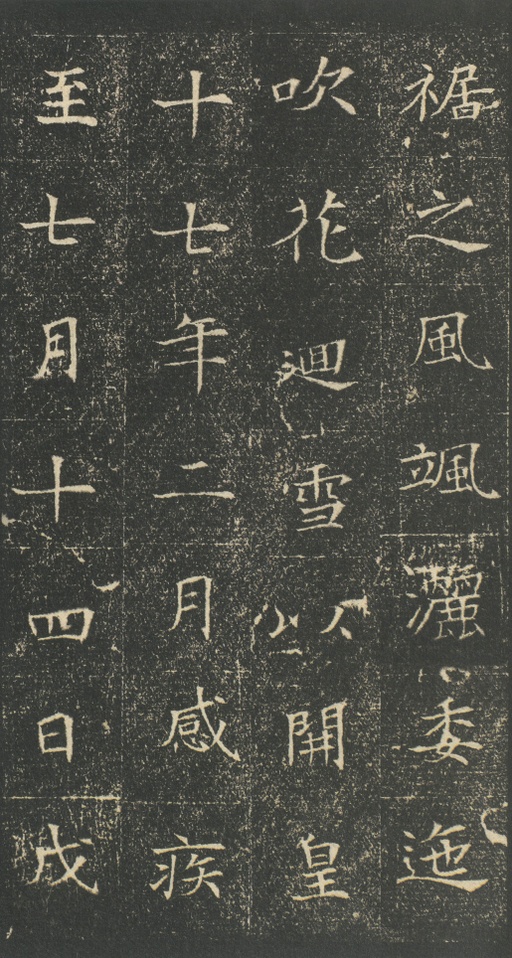 裾之風颯灑委迤
吹花迴雪以開皇
十七年二月感疾
至七月十四日戊